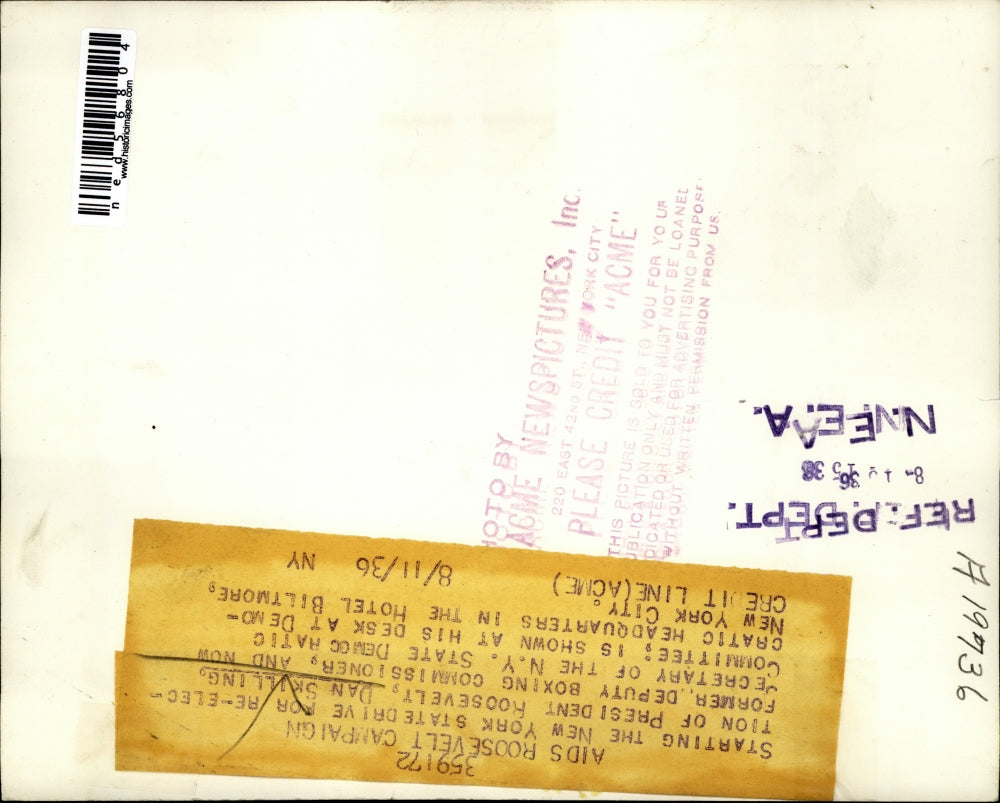 n e d 5 6 8 0 4
www.historicimages.com
PHOTO BY
ACME NEWSPICTURES, Inc.
220 EAST 42ND ST., NEW YORK CITY.
PLEASE CREDIT "ACME"
THIS PICTURE IS SOLD TO YOU FOR YOUR
PUBLICATION ONLY AND MUST NOT BE LOANED
DICATED OR USED FOR ADVERTISING PURPOSE
WITHOUT WRITTEN PERMISSION FROM US.
REF. DEPT.
N.E.A.
H 19736
359172
AIDS ROOSEVELT CAMPAIGN
STARTING THE NEW YORK STATE DRIVE FOR RE-ELEC-
TION OF PRESIDENT ROOSEVELT, DAN SKILLING,
FORMER DEPUTY BOXING COMMISSIONER, AND NOW
SECRETARY OF THE N.Y. STATE DEMOCRATIC
COMMITTEE; IS SHOWN AT HIS DESK AT DEMO-
CRATIC HEADQUARTERS IN THE HOTEL BILTMORE,
NEW YORK CITY.
CREDIT LINE (ACME) 8/11/36 NY